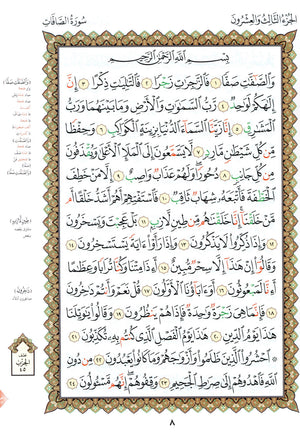 الجزء الثالث والعشرون
سورة الصافات
بِسْمِ اللَّهِ الرَّحْمَٰنِ الرَّحِيمِ
وَالصَّافَّاتِ صَفًّا ١ فَالزَّاجِرَاتِ زَجْرًا ٢ فَالتَّالِيَاتِ ذِكْرًا ٣ إِنَّ
إِلَٰهَكُمْ لَوَاحِدٌ ٤ رَبُّ السَّمَاوَاتِ وَالْأَرْضِ وَمَا بَيْنَهُمَا وَرَبُّ
الْمَشَارِقِ ٥ إِنَّا زَيَّنَّا السَّمَاءَ الدُّنْيَا بِزِينَةٍ الْكَوَاكِبِ ٦ وَحِفْظًا
مِّن كُلِّ شَيْطَانٍ مَّارِدٍ ٧ لَّا يَسَّمَّعُونَ إِلَى الْمَلَإِ الْأَعْلَىٰ وَيُقْذَفُونَ
مِن كُلِّ جَانِبٍ ٨ دُحُورًا وَلَهُمْ عَذَابٌ وَاصِبٌ ٩ إِلَّا مَنْ خَطِفَ
الْخَطْفَةَ فَأَتْبَعَهُ شِهَابٌ ثَاقِبٌ ١٠ فَاسْتَفْتِهِمْ أَهُمْ أَشَدُّ خَلْقًا أَم
مَّنْ خَلَقْنَا إِنَّا خَلَقْنَاهُم مِّن طِينٍ لَّازِبٍ ١١ بَلْ عَجِبْتَ وَيَسْخَرُونَ
١٢ وَإِذَا ذُكِّرُوا لَا يَذْكُرُونَ ١٣ وَإِذَا رَأَوْا آيَةً يَسْتَسْخِرُونَ ١٤
وَقَالُوا إِنْ هَٰذَا إِلَّا سِحْرٌ مُّبِينٌ ١٥ أَإِذَا مِتْنَا وَكُنَّا تُرَابًا وَعِظَامًا
أَإِنَّا لَمَبْعُوثُونَ ١٦ أَوَآبَاؤُنَا الْأَوَّلُونَ ١٧ قُلْ نَعَمْ وَأَنتُمْ دَاخِرُونَ
١٨ فَإِنَّمَا هِيَ زَجْرَةٌ وَاحِدَةٌ فَإِذَا هُمْ يَنظُرُونَ ١٩ وَقَالُوا يَا وَيْلَنَا
هَٰذَا يَوْمُ الدِّينِ ٢٠ هَٰذَا يَوْمُ الْفَصْلِ الَّذِي كُنتُم بِهِ تُكَذِّبُونَ ٢١
۞ احْشُرُوا الَّذِينَ ظَلَمُوا وَأَزْوَاجَهُمْ وَمَا كَانُوا يَعْبُدُونَ ٢٢ مِن دُونِ
اللَّهِ فَاهْدُوهُمْ إِلَىٰ صِرَاطِ الْجَحِيمِ ٢٣ وَقِفُوهُمْ إِنَّهُم مَّسْئُولُونَ ٢٤
الحزب
٤٥
٨